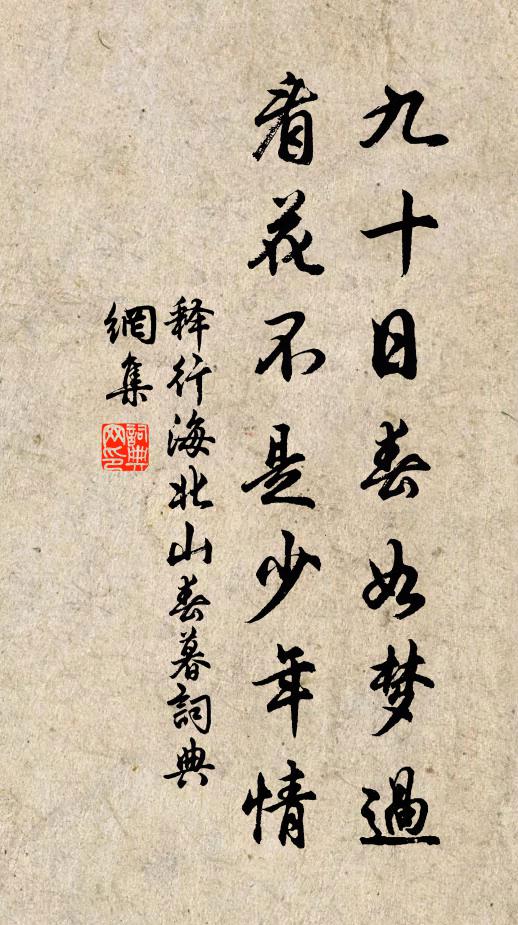 九十日春如梦過
看花不是少年情
释行海北山春暮詞典
網集
詞典
网印